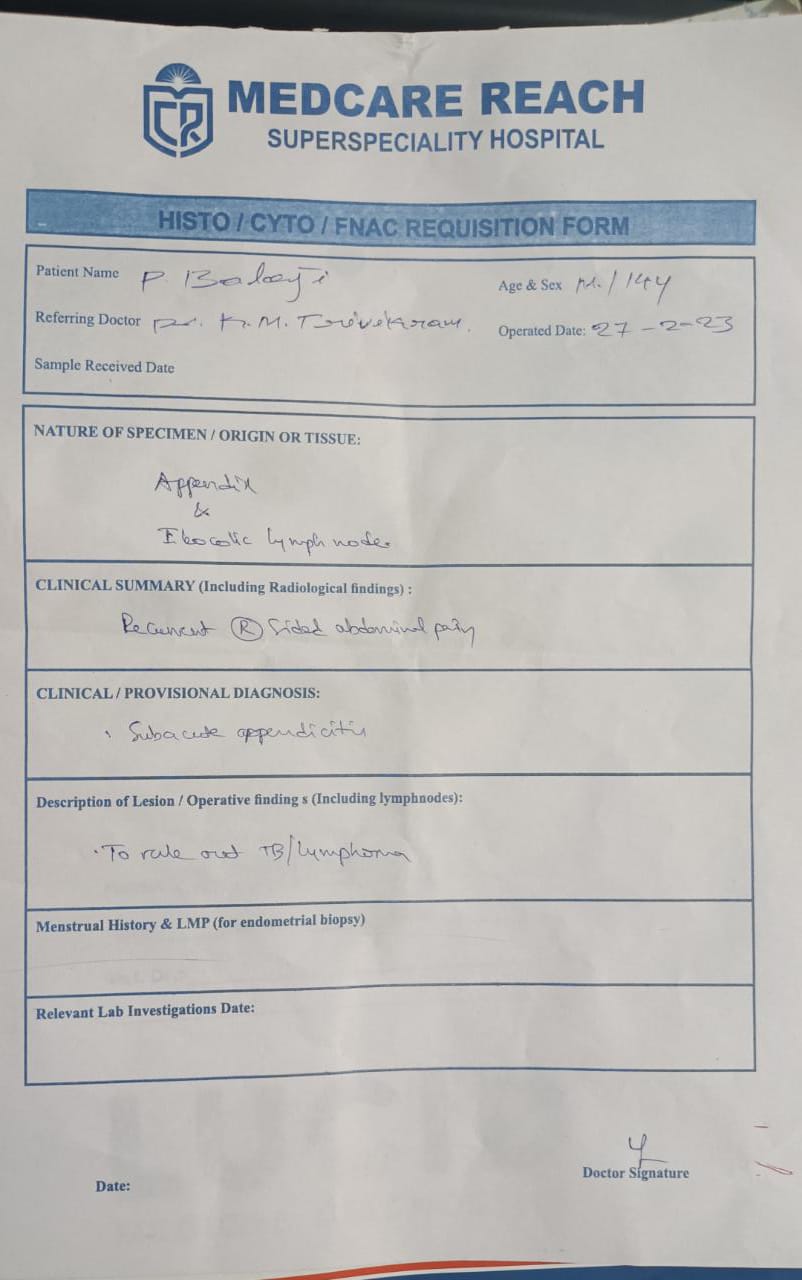 CR
MEDCARE REACH
SUPERSPECIALITY HOSPITAL
HISTO / CYTO / FNAC REQUISITION FORM
Patient Name P. Balaji
Age & Sex M. / 14y
Referring Doctor Dr. K. M. Trivikram.
Operated Date: 27-2-23
Sample Received Date
NATURE OF SPECIMEN / ORIGIN OR TISSUE:
Appendix
&
Ileocolic lymph node.
CLINICAL SUMMARY (Including Radiological findings) :
Recurrent (R) Sided abdominal pain
CLINICAL / PROVISIONAL DIAGNOSIS:
Subacute appendicitis
Description of Lesion / Operative finding s (Including lymphnodes):
To rule out TB/Lymphoma
Menstrual History & LMP (for endometrial biopsy)
Relevant Lab Investigations Date:
Doctor Signature
Date: